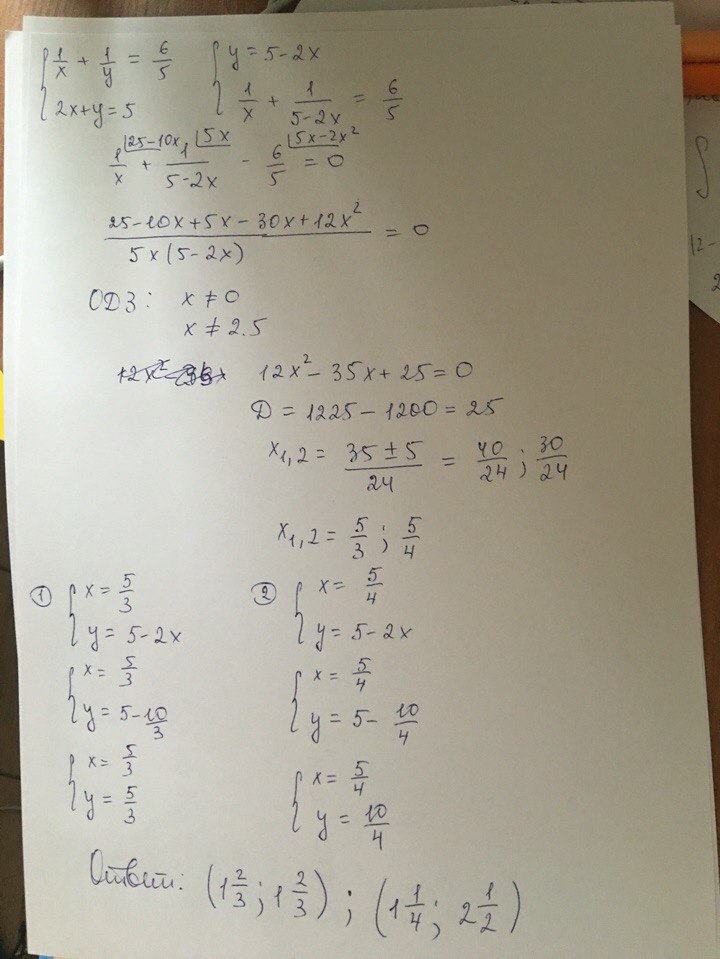 { 1/x + 1/y = 6/5 { y = 5-2x
2x+y=5 1/x + 1/(5-2x) = 6/5
1/x |25-10x + 1/(5-2x) |5x - 6/5 |5x-2x² = 0
(25-10x+5x-30x+12x²)/(5x(5-2x)) = 0
ОДЗ: x ≠ 0
x ≠ 2.5
12x² - 35x + 25 = 0
D = 1225 - 1200 = 25
x1,2 = (35 ± 5)/24 = 40/24 ; 30/24
x1,2 = 5/3 ; 5/4
① { x = 5/3 ② { x = 5/4
y = 5-2x y = 5-2x
{ x = 5/3 { x = 5/4
y = 5-10/3 y = 5- 10/4
{ x = 5/3 { x = 5/4
y = 5/3 y = 10/4
Ответ: (1 2/3 ; 1 2/3) ; (1 1/4 ; 2 1/2)